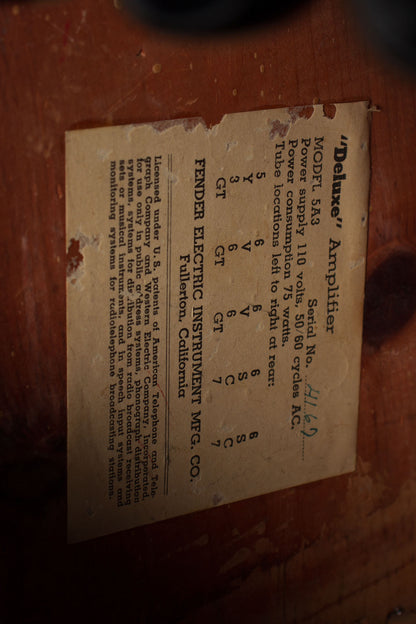 "Deluxe" Amplifier
MODEL 5A3 Serial No. 4169
Power supply 110 volts, 50/60 cycles AC.
Power consumption 75 watts.
Tube locations left to right at rear:
5 6 6 6 6
Y V V S S
3 6 6 C C
GT GT GT 7 7
FENDER ELECTRIC INSTRUMENT MFG. CO.
Fullerton, California
Licensed under U.S. patents of American Telephone and Tele-
graph Company and Western Electric Company, Incorporated,
for use only in public address systems, phonograph distribution
systems, systems for distribution from radio broadcast receiving
sets or musical instruments, and in speech input systems and
monitoring systems for radiotelephone broadcasting stations.